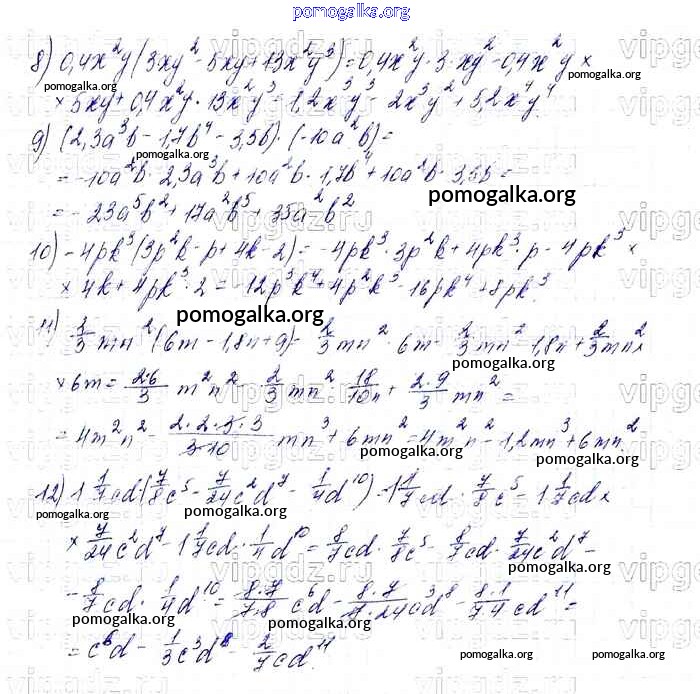 pomogalka.org
8) 0,4x²y(3xy² - 5xy + 13x²y³) = 0,4x²y · 3 · xy² - 0,4x²y ×
× 5xy + 0,4x²y · 13x²y³ = 1,2x³y³ - 2x³y² + 5,2x⁴y⁴.
9) (2,3a³b - 1,7b⁴ - 3,5b) · (-10a²b) =
pomogalka.org
= -10a²b · 2,3a³b + 10a²b · 1,7b⁴ + 10a²b · 3,5b =
pomogalka.org
= -23a⁵b² + 17a²b⁵ + 35a²b²
10) -4pk³(3p²k - p + 4k - 2) = -4pk³ · 3p²k + 4pk³ · p - 4pk³ ×
× 4k + 4pk³ · 2 = -12p³k⁴ + 4p²k³ - 16pk⁴ + 8pk³.
pomogalka.org
11) 2/3 mn²(6m - 1,8n + 9) = 2/3 mn² · 6m - 2/3 mn² · 1,8n + 2/3 mn² ×
pomogalka.org
× 6m = 2·6/3 m²n² - 2/3 mn² · 18/10 n + 2·9/3 mn² =
= 4m²n² - 2·2·3·3/3·10 mn³ + 6mn² = 4m²n² - 1,2mn³ + 6mn².
pomogalka.org
pomogalka.org
12) 1 1/7 cd(7/8 c⁵ - 7/24 c²d⁷ - 1/4 d¹⁰) = 1 1/7 cd · 7/8 c⁵ = 1 1/7 cd ×
pomogalka.org
pomogalka.org
× 7/24 c²d⁷ - 1 1/7 cd · 1/4 d¹⁰ = 8/7 cd · 7/8 c⁵ - 8/7 cd · 7/24 c²d⁷ -
pomogalka.org
- 8/7 cd · 1/4 d¹⁰ = 8·7/7·8 c⁶d - 8·7/7·24 c³d⁸ - 8·1/7·4 cd¹¹ =
pomogalka.org
pomogalka.org
= c⁶d - 1/3 c³d⁸ - 2/7 cd¹¹.
pomogalka.org
pomogalka.org